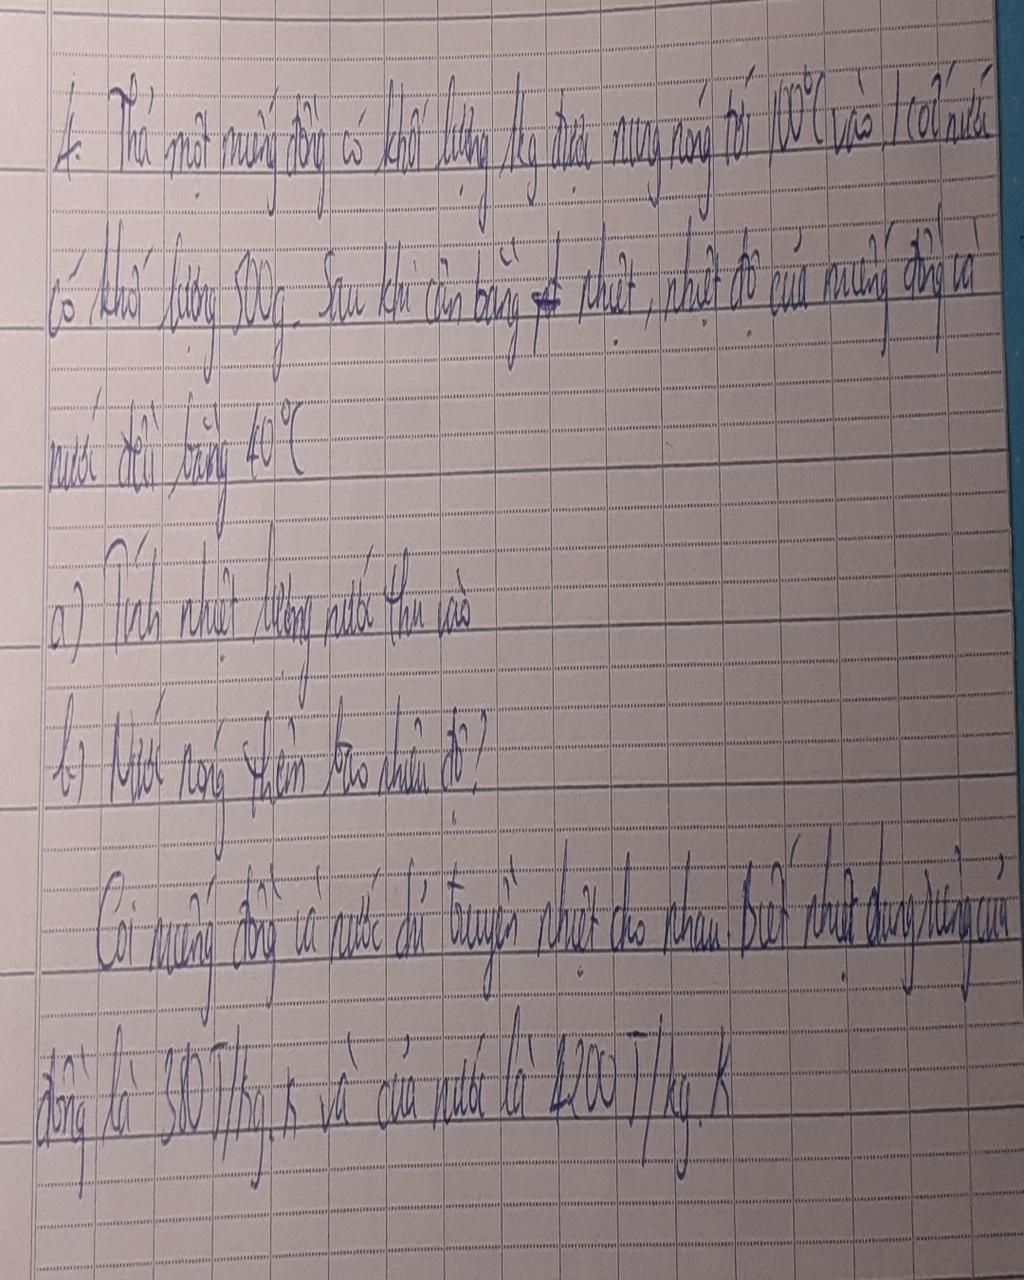 4. Thả một miếng đồng có khối lượng 1kg được nung nóng tới 100°C vào 1 cốc nước
có khối lượng 500g. Sau khi cân bằng nhiệt, nhiệt độ của miếng đồng và
nước đều bằng 40°C
a) Tính nhiệt lượng nước thu vào
b) Nước nóng thêm bao nhiêu độ?
Coi miếng đồng và nước chỉ truyền nhiệt cho nhau. Biết nhiệt dung riêng của
đồng là 380 J/kg.K và của nước là 4200 J/kg.K